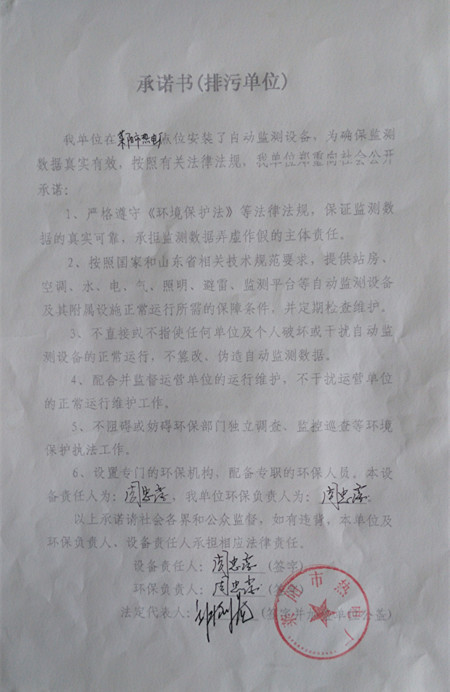 承诺书(排污单位)
我单位在莱阳市热电厂点位安装了自动监测设备，为确保监测
数据真实有效，按照有关法律法规，我单位郑重向社会公开
承诺：
1、严格遵守《环境保护法》等法律法规，保证监测数
据的真实可靠，承担监测数据弄虚作假的主体责任。
2、按照国家和山东省相关技术规范要求，提供站房、
空调、水、电、气、照明、避雷、监测平台等自动监测设备
及其附属设施正常运行所需的保障条件，并定期检查维护。
3、不直接或不指使任何单位及个人破坏或干扰自动监
测设备的正常运行，不篡改、伪造自动监测数据。
4、配合并监督运营单位的运行维护，不干扰运营单位
的正常运行维护工作。
5、不阻碍或妨碍环保部门独立调查、监控巡查等环境
保护执法工作。
6、设置专门的环保机构，配备专职的环保人员，本设
备责任人为：周忠，我单位环保负责人为：周忠
以上承诺请社会各界和公众监督，如有违背，本单位及
环保负责人、设备责任人承担相应法律责任。
设备责任人：周忠（签字）
环保负责人：周忠（签字）
法定代表人：（签字并加盖单位公章）
莱阳市热电厂